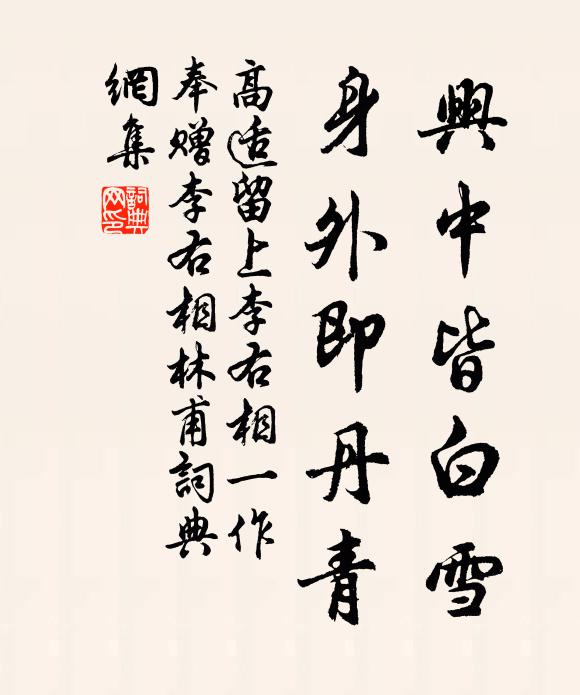 興中皆白雪
身外即丹青
高适留上李右相一作
奉贈李右相林甫詞典
網集
詞典
网印